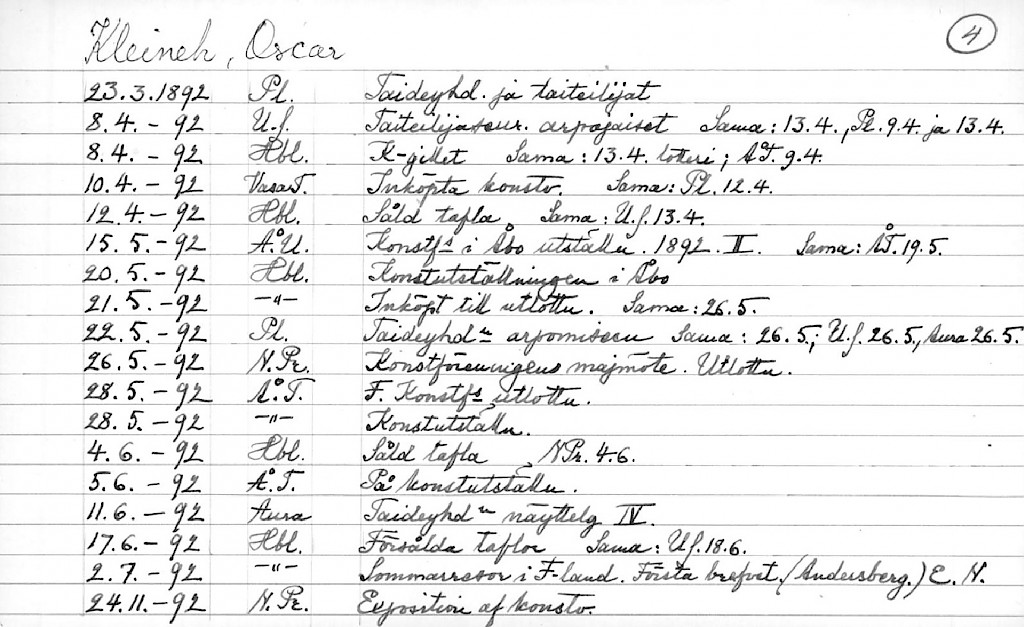 Kleineh, Oscar
4
23.3.1892 Pl. Taideyhd. ja taiteilijat
8.4.-92 U.s. Taiteilijaseur. arpajaiset Sama: 13.4., Pr. 9.4. ja 13.4.
8.4.-92 Hbl. K-gillet Sama: 13.4. lotteri; ÅT. 9.4.
10.4.-92 VasaT. Inköpta konstv. Sama: Pl. 12.4.
12.4.-92 Hbl. Såld tafla Sama: U.s. 13.4.
15.5.-92 Å.U. Konstfs i Åbo utställn. 1892. II. Sama: ÅT. 19.5.
20.5.-92 Hbl. Konstutställningen i Åbo
21.5.-92 -"- Inköpt till utlottn. Sama: 26.5.
22.5.-92 Pl. Taideyhdn arpomiseen Sama: 26.5.; U.s. 26.5., Aura 26.5.
26.5.-92 N.Pr. Konstföreningens majmöte. Utlottn.
28.5.-92 Å.T. F. Konstfs utlottn.
28.5.-92 -"- Konstutställn.
4.6.-92 Hbl. Såld tafla NPr. 4.6.
5.6.-92 Å.T. På konstutställn.
11.6.-92 Aura Taideyhdn näyttelg IV.
17.6.-92 Hbl. Försålda taflor Sama: U.s. 18.6.
2.7.-92 -"- Sommarresor i F-land. Första brefvet. (Andersberg.) E. N.
24.11.-92 N.Pr. Exposition af konstv.